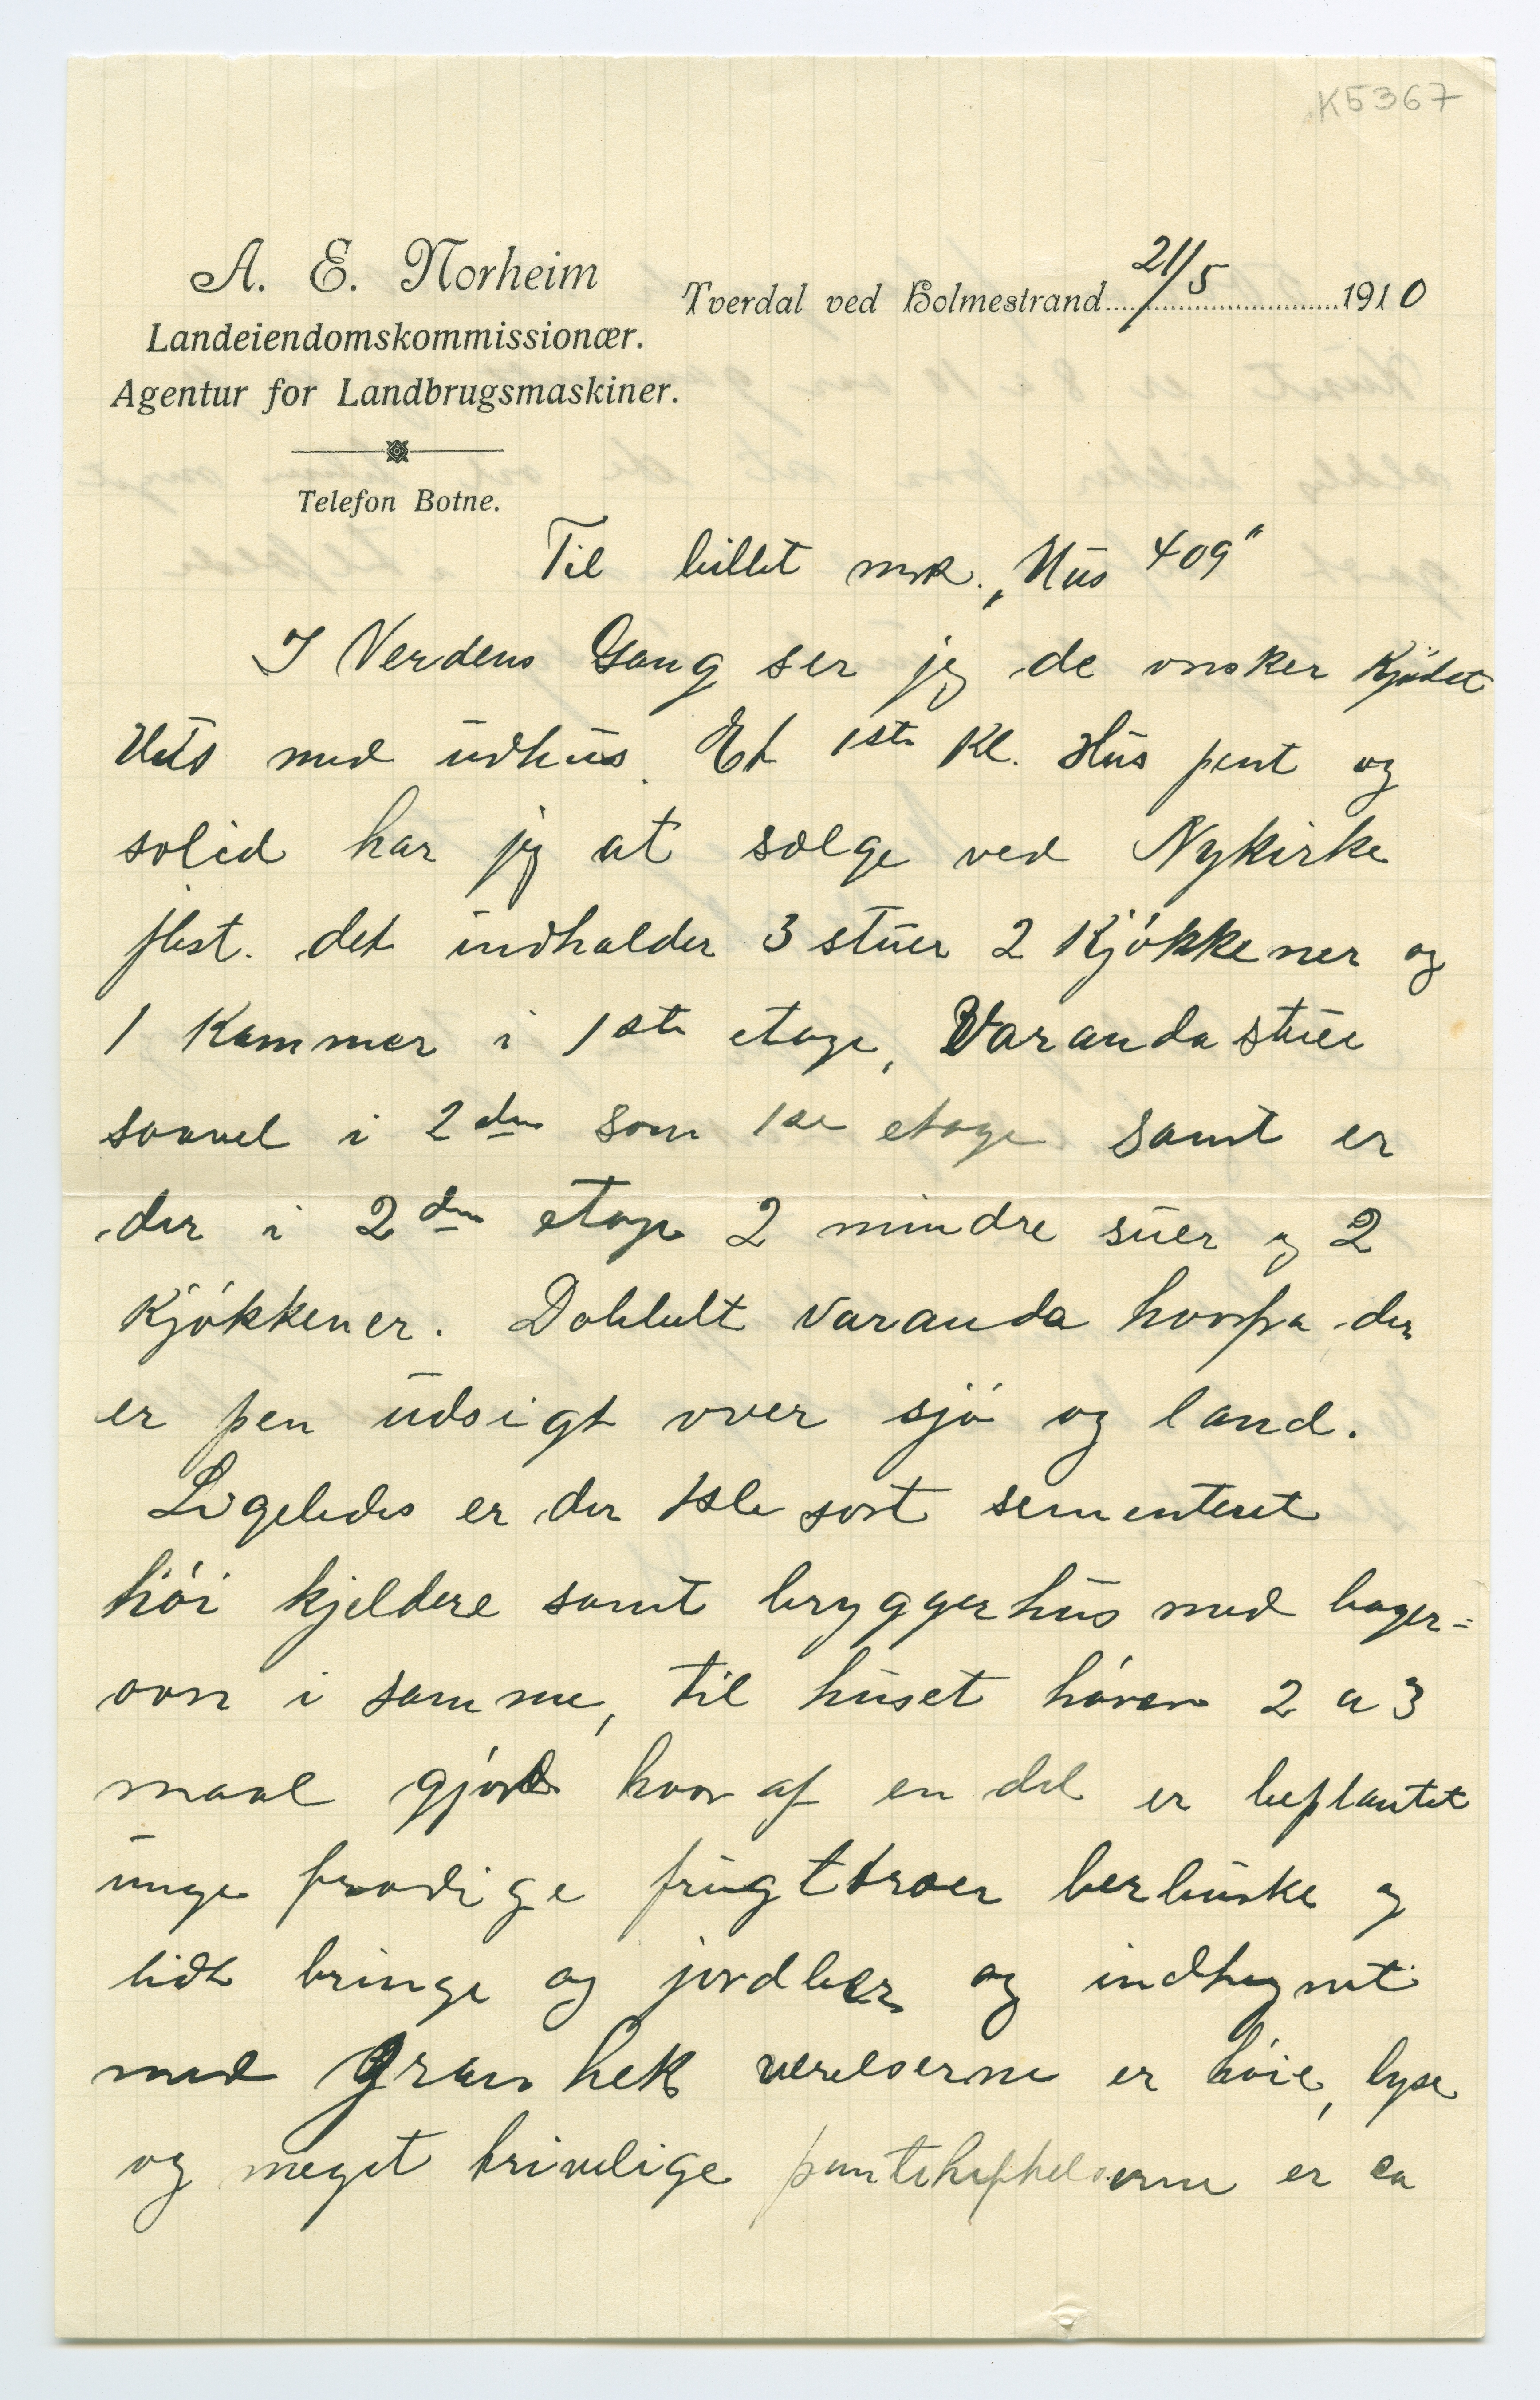 K5367
A. E. Norheim
Landeiendomskommissionær.
Agentur for Landbrugsmaskiner.
Telefon Botne.
Tverdal ved Holmestrand 21/5 1910
Til billet mrk. „Hus 409"
I Verdens Gang ser jeg de onsker Kjöbet
Hus med udhus. Et 1ste Kl. Hus pent og
solid har jeg at sælge ved Nykirke
jbst. det indholder 3 stuer 2 Kjókkener og
1 Kammer i 1ste etage, Varanda stuer
saavel i 2den som 1ste etage samt er
der i 2den etage 2 mindre suer og 2
Kjókkener. Dobbelt Varanda hvorfra der
er pen udsigt over sjó og land.
Ligeledes er der 1ste sort sementeret
hói kjeldere samt bryggerhus med bager=
ovn i samme, til huset hórer 2 a 3
maal gjórde hvor af en del er beplantet
unge frodige frugttræer berbuske og
lidt bringe og jordber og indhegnet
med Gran hek værelserne er hóie, lyse
og meget trivelige pantehephelserne er ca